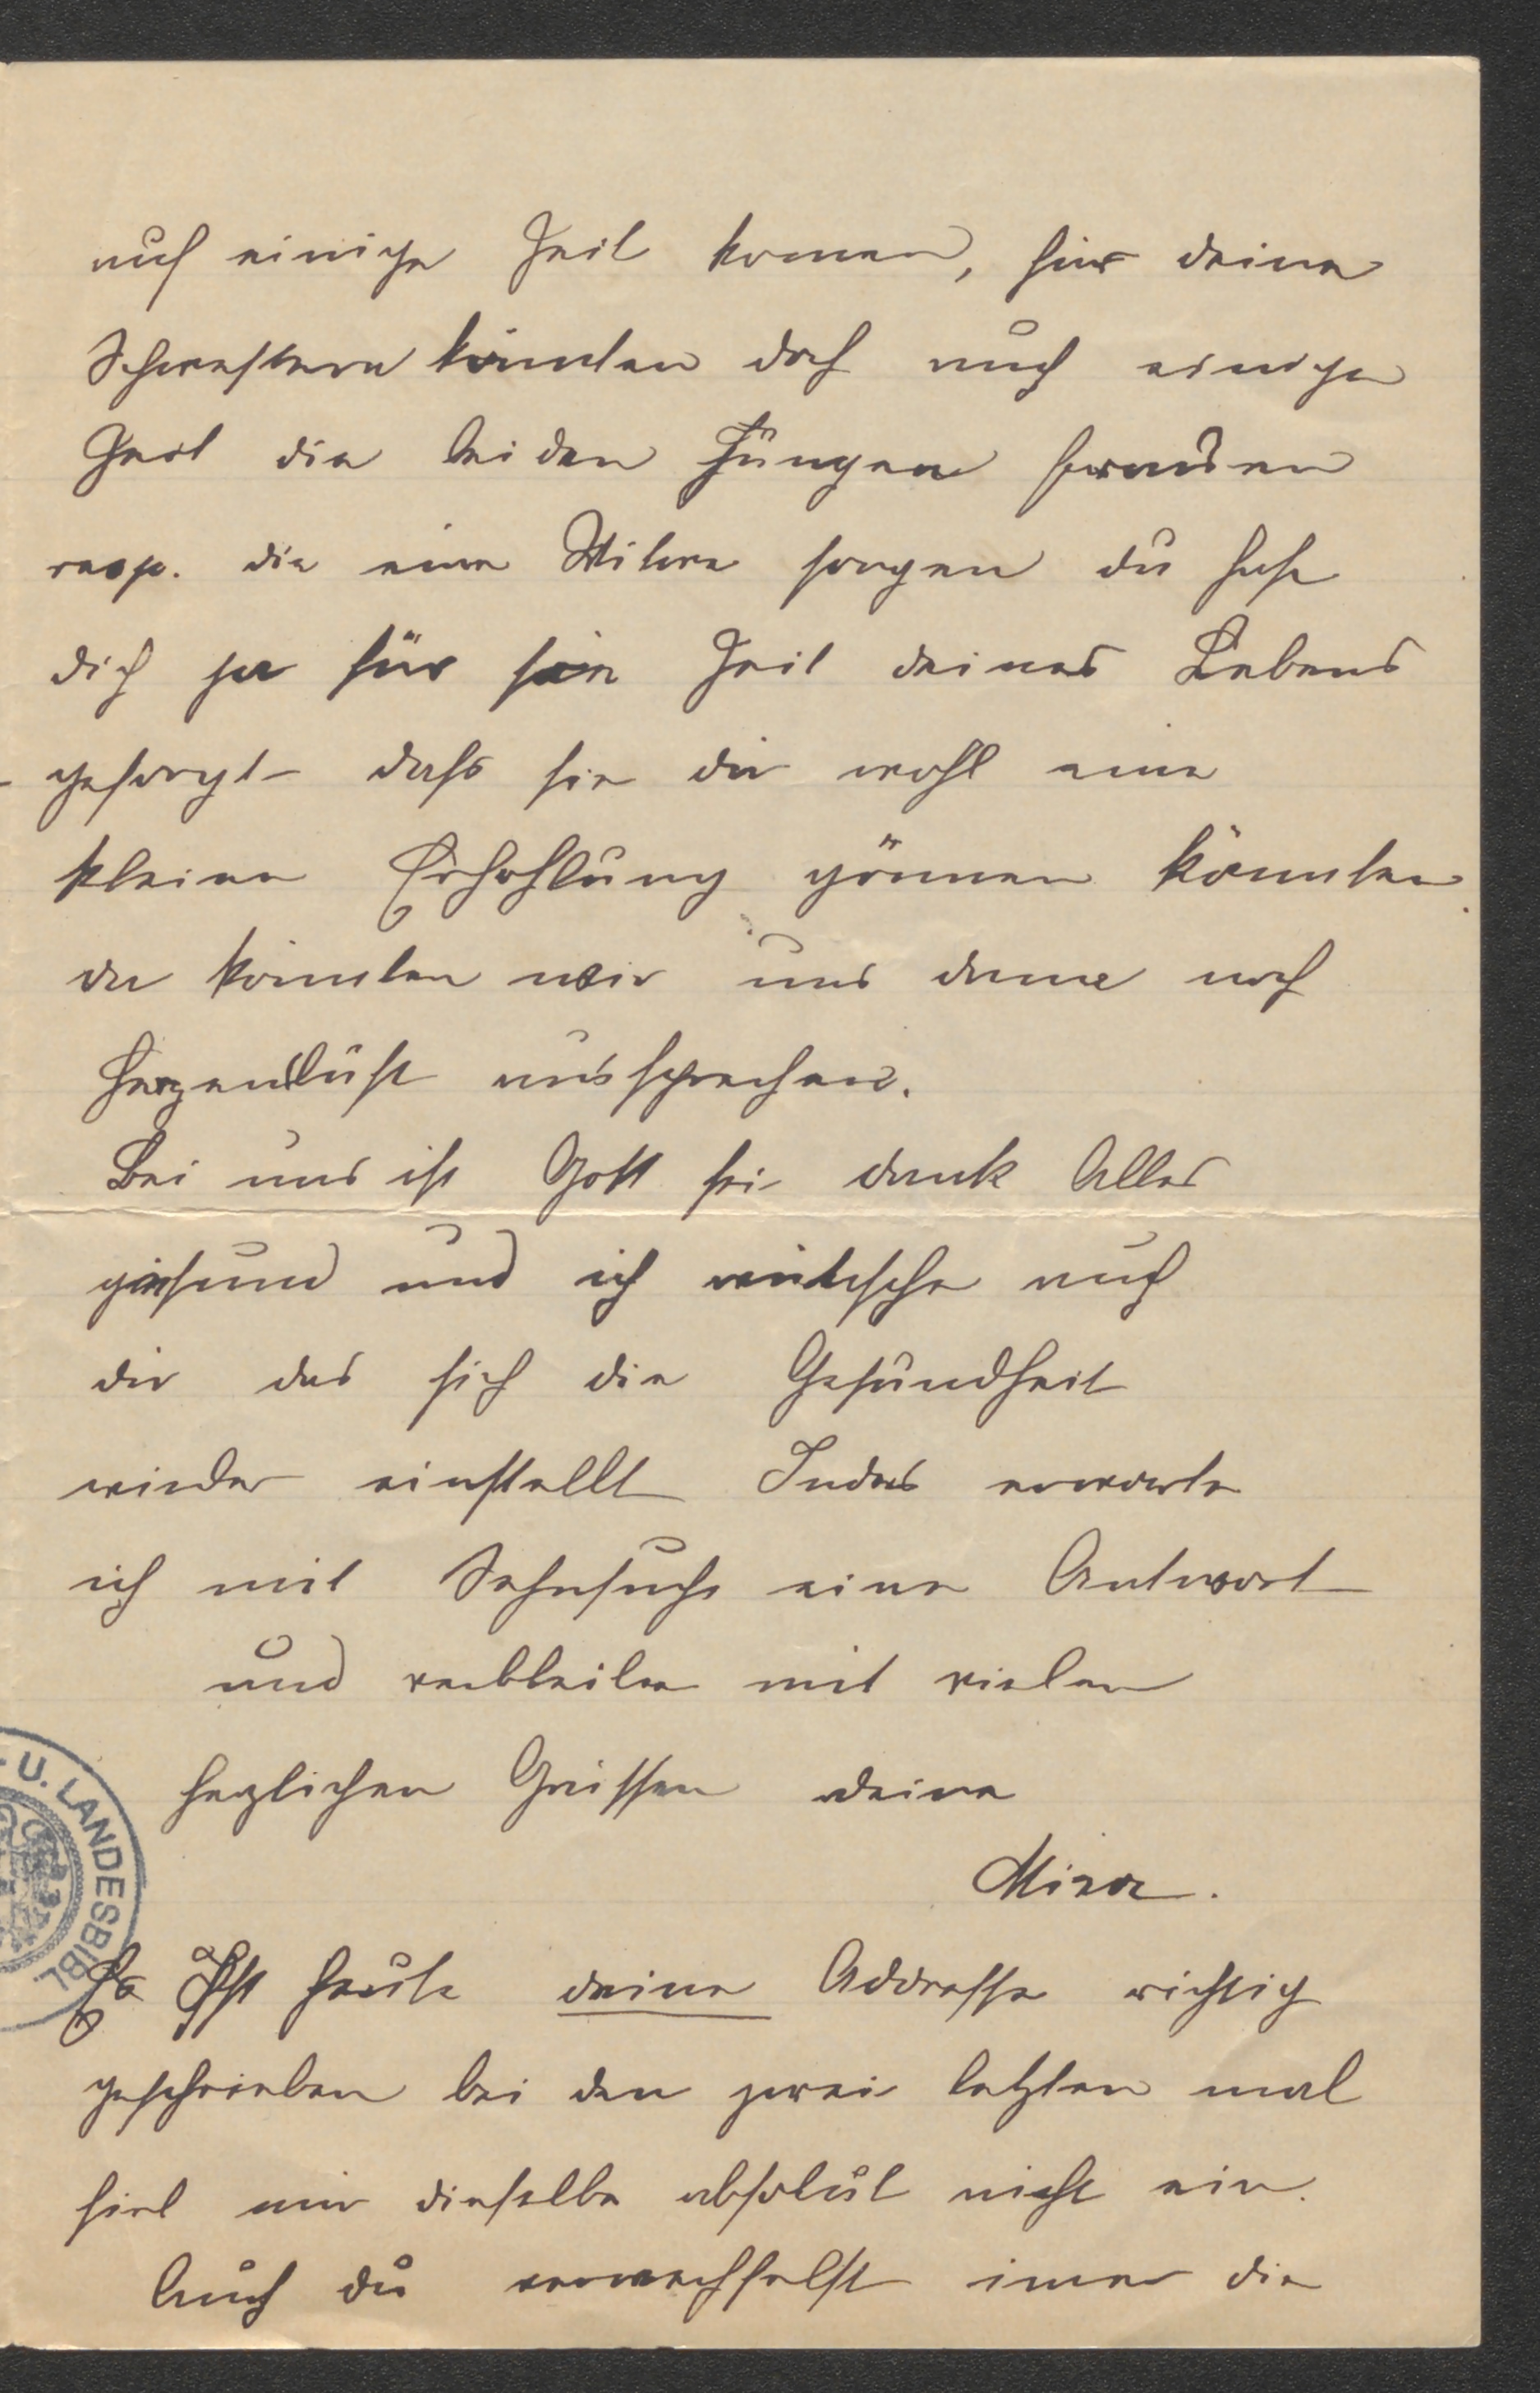 auf einige Zeit komen, für deine
Schwestern könnten doch auch einige
Zeit die beiden Jüngen
resp. die eine Witwe sorgen du hast
dich ja für sie Zeit deines Lebens
gesorgt dass sie dir wohl eine
kleine Erhohlung gönnen könnten
da könnten wir uns dann nach
Herzenslust aussprechen.
Bei uns ist Gott sei dank Alles
gesund und ich wünsche auch
dir das sich die Gesundheit
wieder einstellt Indes erwarte
ich mit Sehnsucht eine Antwort
und verbleibe mit vielen
herzlichen Grüssen deine
U. LANDESBIBL
Ist heute deine Addresse richtig
geschrieben bei den zwei letzten mal
fiel mir dieselbe absolut nicht ein.
Auch du verwechselst imer die